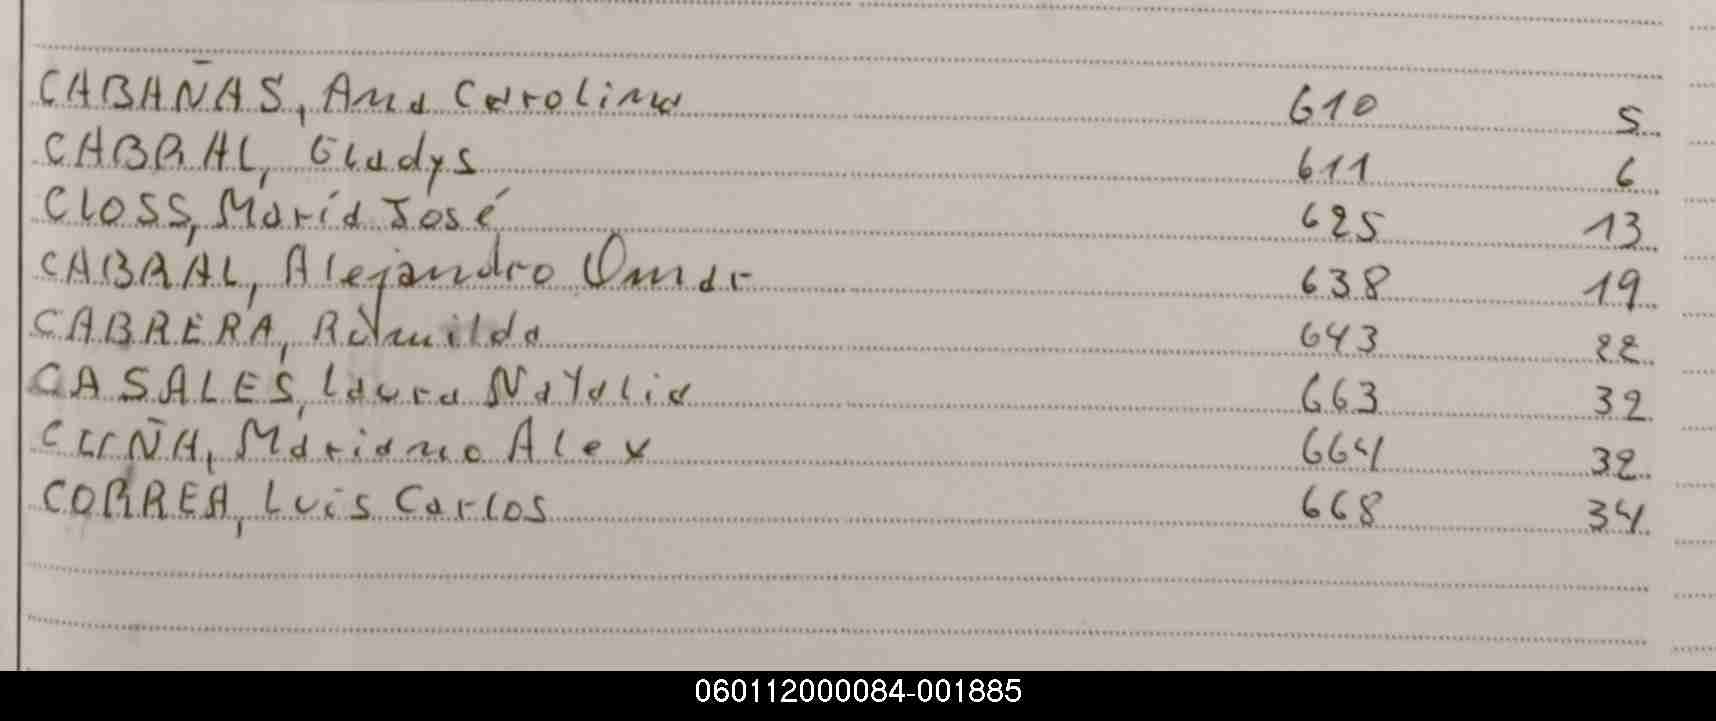 CABAÑAS, Ana Carolina 610 5
CABRAL, Gladys 611 6
CLOSS, María José 625 13
CABRAL, Alejandro Omar 638 19
CABRERA, Romilda 643 22
CASALES, Laura Natalia 663 32
CUÑA, Mariano Alex 664 32
CORREA, Luis Carlos 668 34
060112000084-001885